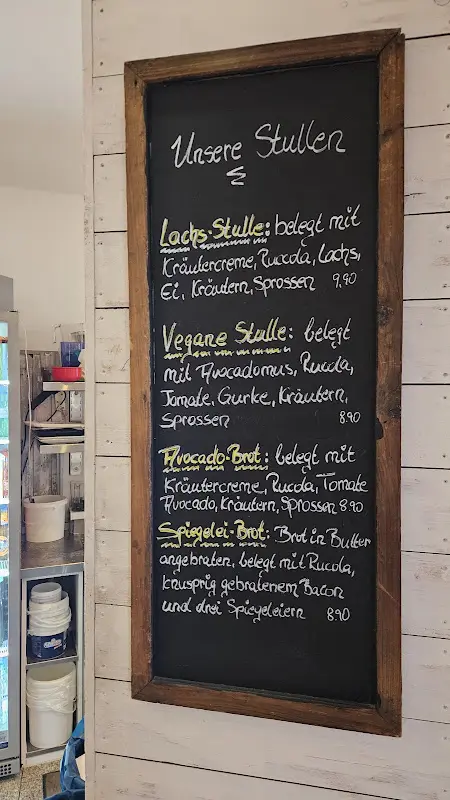 Unsere Stullen
Lachs-Stulle: belegt mit
Kräutercreme, Rucola, Lachs,
Ei, Kräutern, Sprossen 9,90
Vegane Stulle: belegt
mit Avocadomus, Rucola,
Tomate, Gurke, Kräutern,
Sprossen 8.90
Avocado-Brot: belegt mit
Kräutercreme, Rucola, Tomate
Avocado, Kräutern, Sprossen 8.90
Spiegelei-Brot: Brot in Butter
angebraten, belegt mit Rucola,
knusprig gebratenem Bacon
und drei Spiegeleiern 8.90